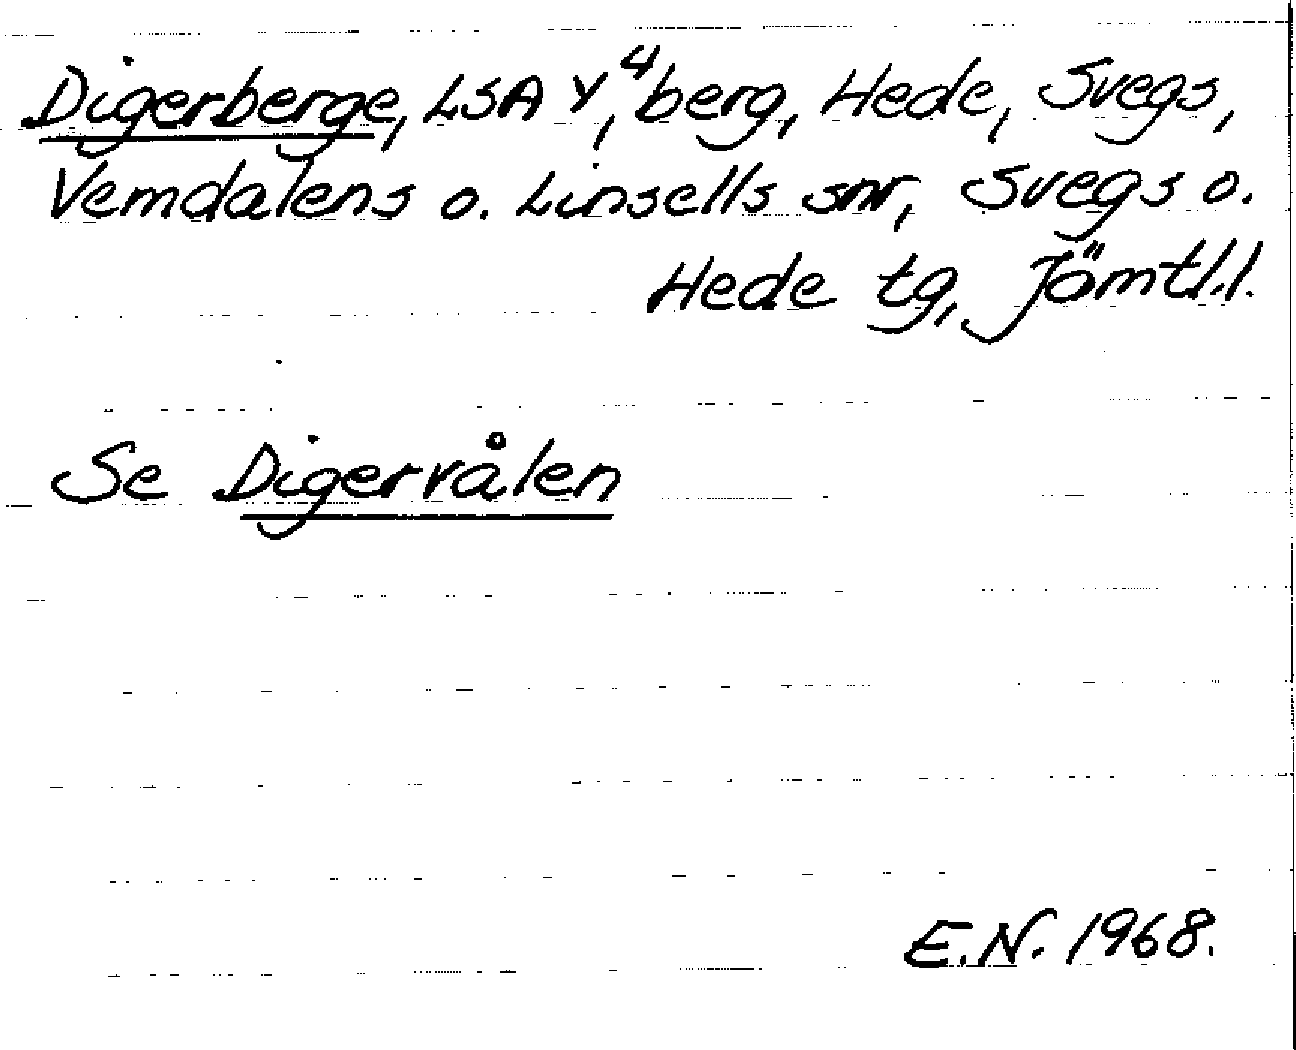 Digerberge, LSA Y⁴, berg, Hede, Svegs,
Vemdalens o. Linsells snr, Svegs o.
Hede tg, Jämtl.l.
Se Digervålen
E.N. 1968.